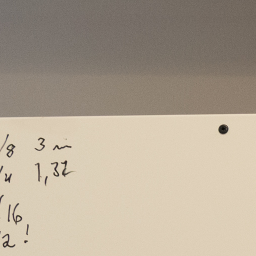 /8 3 m
/4 1,32
/16
/2!